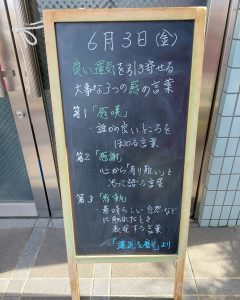 6月3日(金)
良い運気を引き寄せる
大事な3つの感の言葉
第1「感嘆」
誰かの良いところを
ほめる言葉
第2「感謝」
心から「有り難い」と
思って語る言葉
第3「感動」
素晴らしい自然などに
触れたとき
表現する言葉
より